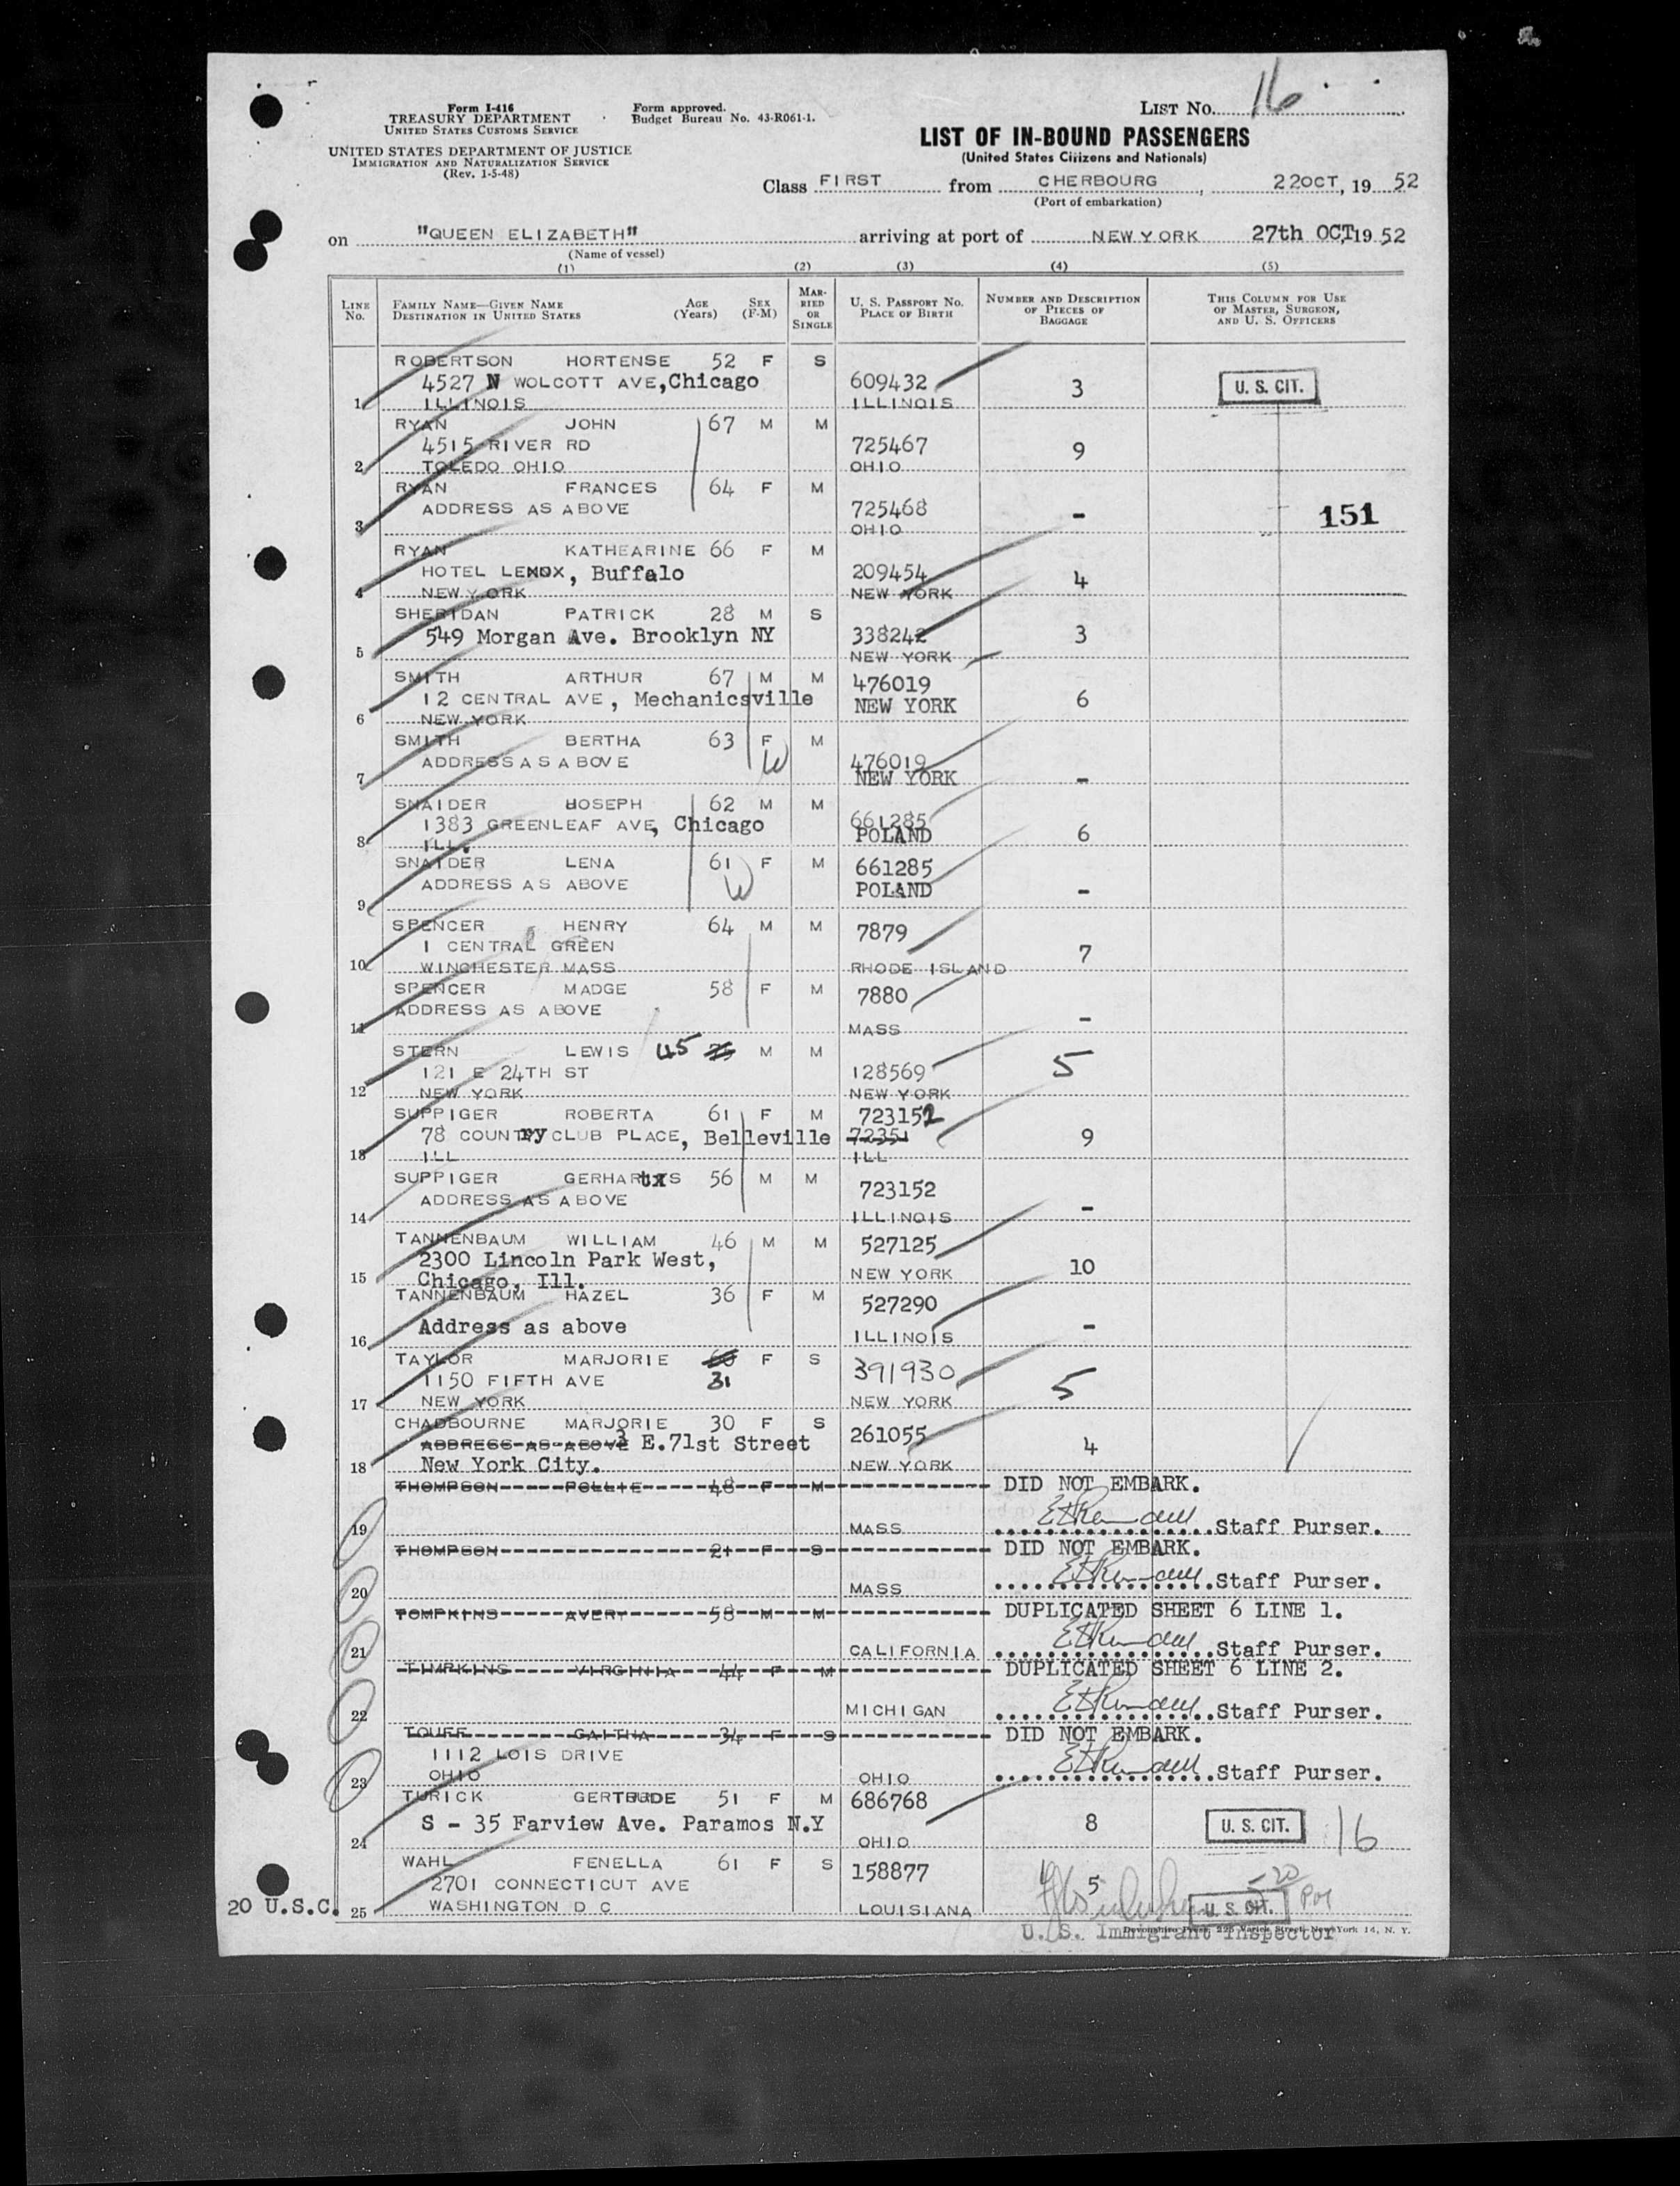 Form I-416
TREASURY DEPARTMENT
UNITED STATES CUSTOMS SERVICE
UNITED STATES DEPARTMENT OF JUSTICE
IMMIGRATION AND NATURALIZATION SERVICE
(Rev. 1-5-48)
Form approved.
Budget Bureau No. 43-R061-1.
LIST No. 16
LIST OF IN-BOUND PASSENGERS
(United States Citizens and Nationals)
Class FIRST from CHERBOURG, 22OCT, 19 52
(Port of embarkation)
on "QUEEN ELIZABETH" arriving at port of NEW YORK 27th OCT, 19 52
(Name of vessel)
(1) (2) (3) (4) (5)
LINE No. FAMILY NAME—GIVEN NAME DESTINATION IN UNITED STATES AGE (Years) SEX (F-M) MARRIED OR SINGLE U. S. PASSPORT No. PLACE OF BIRTH NUMBER AND DESCRIPTION OF PIECES OF BAGGAGE THIS COLUMN FOR USE OF MASTER, SURGEON, AND U. S. OFFICERS
ROBERTSON HORTENSE 52 F S
4527 N WOLCOTT AVE, Chicago 609432 3 U. S. CIT.
1 ILLINOIS ILLINOIS
RYAN JOHN 67 M M
4515 RIVER RD 725467 9
2 TOLEDO OHIO OHIO
RYAN FRANCES 64 F M
ADDRESS AS ABOVE 725468 - 151
3 OHIO
RYAN KATHEARINE 66 F M
HOTEL LENOX, Buffalo 209454 4
4 NEW YORK NEW YORK
SHERIDAN PATRICK 28 M S
549 Morgan Ave. Brooklyn NY 338242 3
5 NEW YORK
SMITH ARTHUR 67 M M 476019
12 CENTRAL AVE, Mechanicsville NEW YORK 6
6 NEW YORK
SMITH BERTHA 63 F M
ADDRESS AS ABOVE W 476019
7 NEW YORK -
SNAIDER JOSEPH 62 M M
1383 GREENLEAF AVE, Chicago 661285 6
8 ILL. POLAND
SNAIDER LENA 61 F M 661285
ADDRESS AS ABOVE W POLAND -
9
SPENCER HENRY 64 M M 7879
1 CENTRAL GREEN 7
10 WINCHESTER MASS RHODE ISLAND
SPENCER MADGE 58 F M 7880
ADDRESS AS ABOVE -
11 MASS
STERN LEWIS 45 M M
121 E 24TH ST 128569 5
12 NEW YORK NEW YORK
SUPPIGER ROBERTA 61 F M 723152
78 COUNTRY CLUB PLACE, Belleville 72351 9
13 ILL ILL
SUPPIGER GERHARtxS 56 M M 723152
ADDRESS AS ABOVE -
14 ILLINOIS
TANNENBAUM WILLIAM 46 M M 527125
2300 Lincoln Park West, 10
15 Chicago, Ill. NEW YORK
TANNENBAUM HAZEL 36 F M 527290
Address as above -
16 ILLINOIS
TAYLOR MARJORIE F S 391930
1150 FIFTH AVE 31 5
17 NEW YORK NEW YORK
CHADBOURNE MARJORIE 30 F S 261055
ADDRESS AS ABOVE 3 E.71st Street 4
18 New York City. NEW YORK
THOMPSON POLLIE 48 F M DID NOT EMBARK.
19 MASS Staff Purser.
THOMPSON 21 F S DID NOT EMBARK.
20 MASS Staff Purser.
TOMPKINS AVERY 58 M M DUPLICATED SHEET 6 LINE 1.
21 CALIFORNIA Staff Purser.
TIMPKINS VIRGINIA 44 F M DUPLICATED SHEET 6 LINE 2.
22 MICHIGAN Staff Purser.
TOUFF GAITHA 34 F S DID NOT EMBARK.
1112 LOIS DRIVE
23 OHIO OHIO Staff Purser.
TURICK GERTRUDE 51 F M 686768
S - 35 Farview Ave. Paramos N.Y 8 U. S. CIT. 16
24 OHIO
WAHL FENELLA 61 F S 158877
2701 CONNECTICUT AVE 5
20 U.S.C. 25 WASHINGTON D C LOUISIANA U. S. CIT.
U. S. Immigrant Inspector
Devonshire Press, 225 Varick Street, New York 14, N. Y.